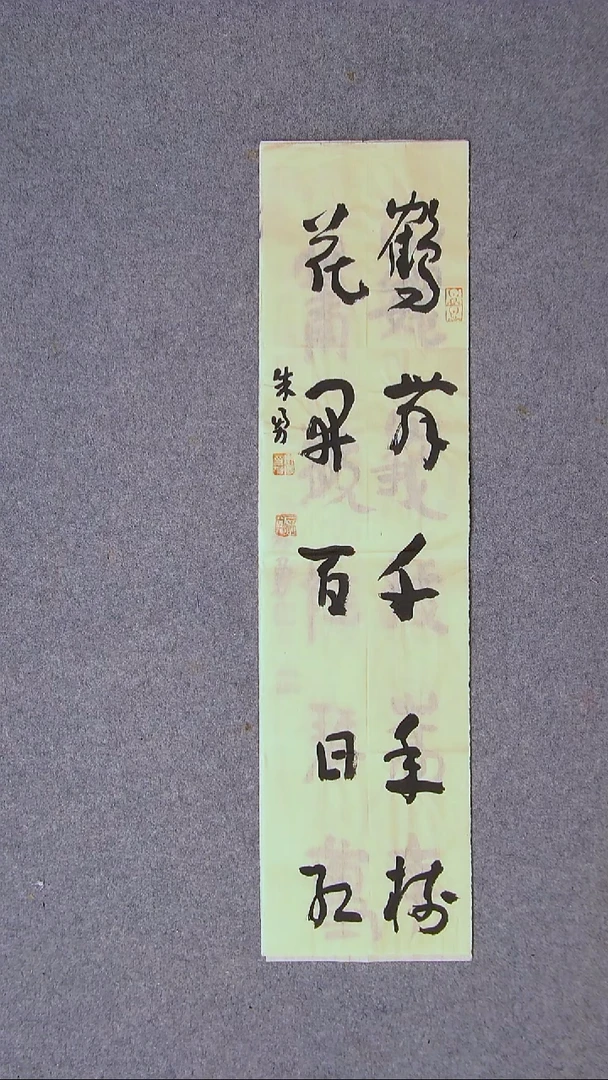 鹤舞千年树
花开百日红
朱勇